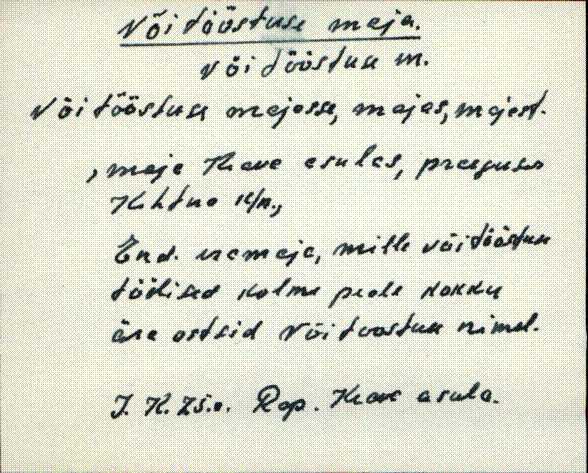 Võitööstuse maja.
võitööstuse m.
Võitööstuse majasse, majas, majast.
, maja Keava asulas, praeguses
Kehtna k/n.,
End. eramaja, mille võitööstuse
töölised kolme peale kokku
ära ostsid Võitööstuse nimel.
J. K. 25.a. Rap. Keava asula.